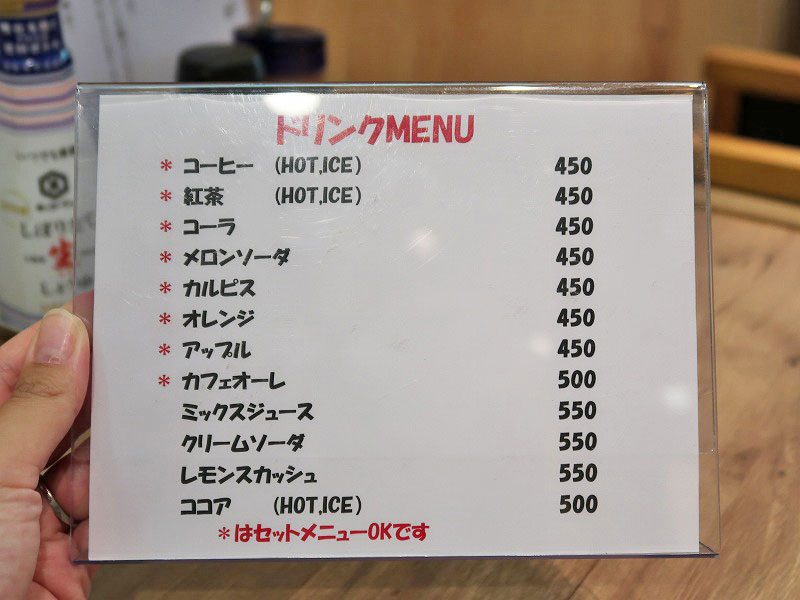 ドリンクMENU
* コーヒー (HOT,ICE) 450
* 紅茶 (HOT,ICE) 450
* コーラ 450
* メロンソーダ 450
* カルピス 450
* オレンジ 450
* アップル 450
* カフェオーレ 500
ミックスジュース 550
クリームソーダ 550
レモンスカッシュ 550
ココア (HOT,ICE) 500
*はセットメニューOKです
いつでも新鮮
しぼりたて
生
しょうゆ